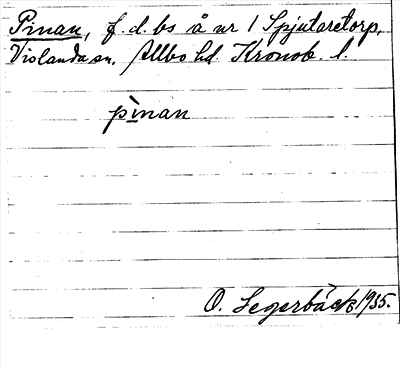 Pinan, f. d. bs å nr 1 Spjutaretorp,
Vislanda sn. Allbo hd. Kronob. l.
pìnan
O. Segerbäck 1935.